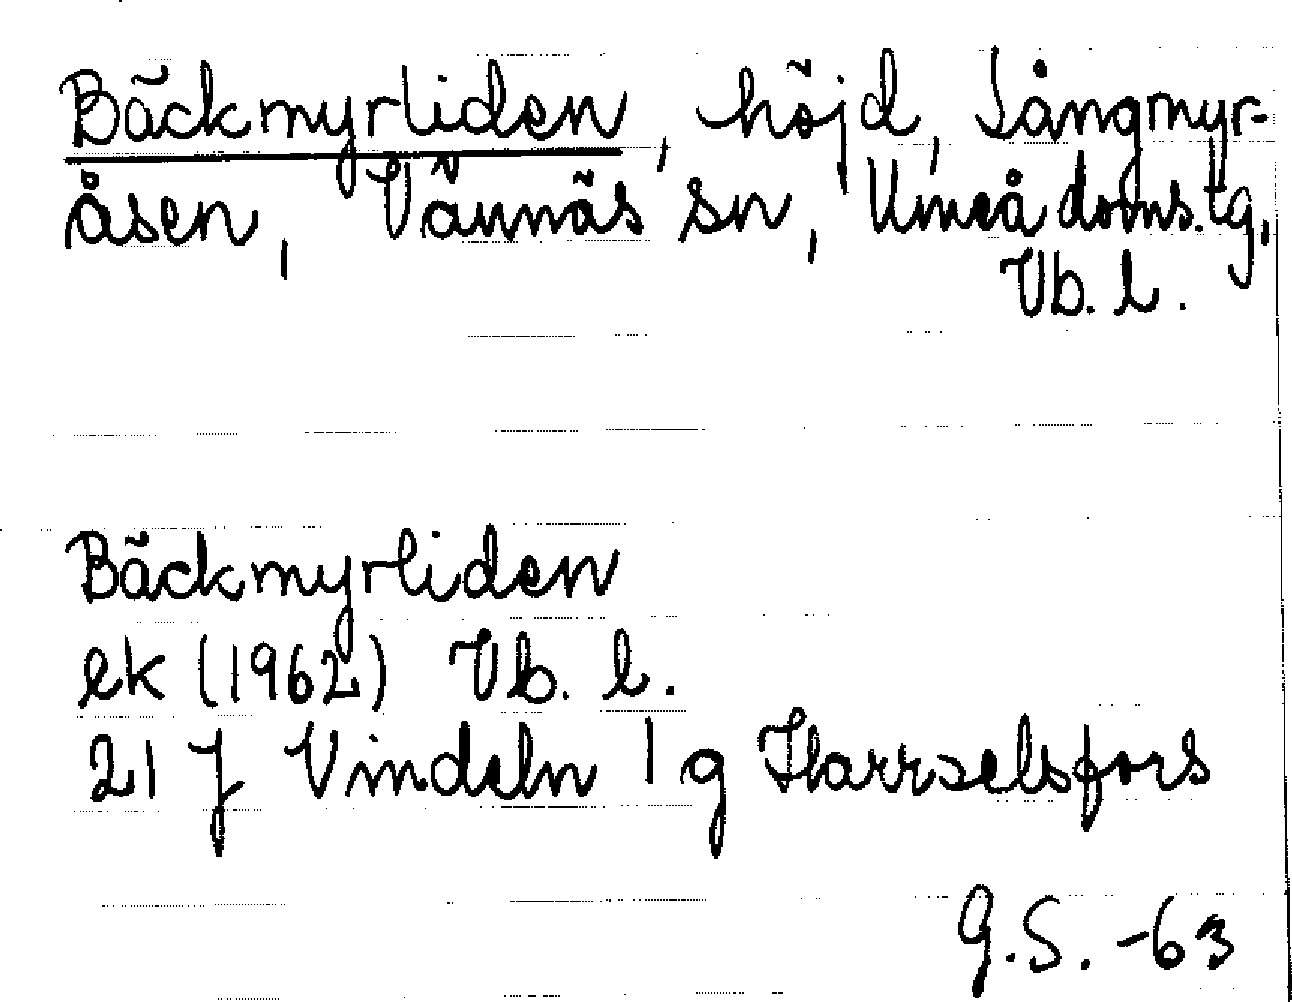 Bäckmyrliden, höjd, Långmyr-
åsen, Vännäs sn, Umeå doms.tg,
Vb. l.
Bäckmyrliden
ek (1962) Vb. l.
21 J Vindeln 1 g Harrselsfors
G.S. -63